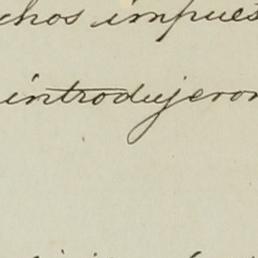 chos impues
introdujeron